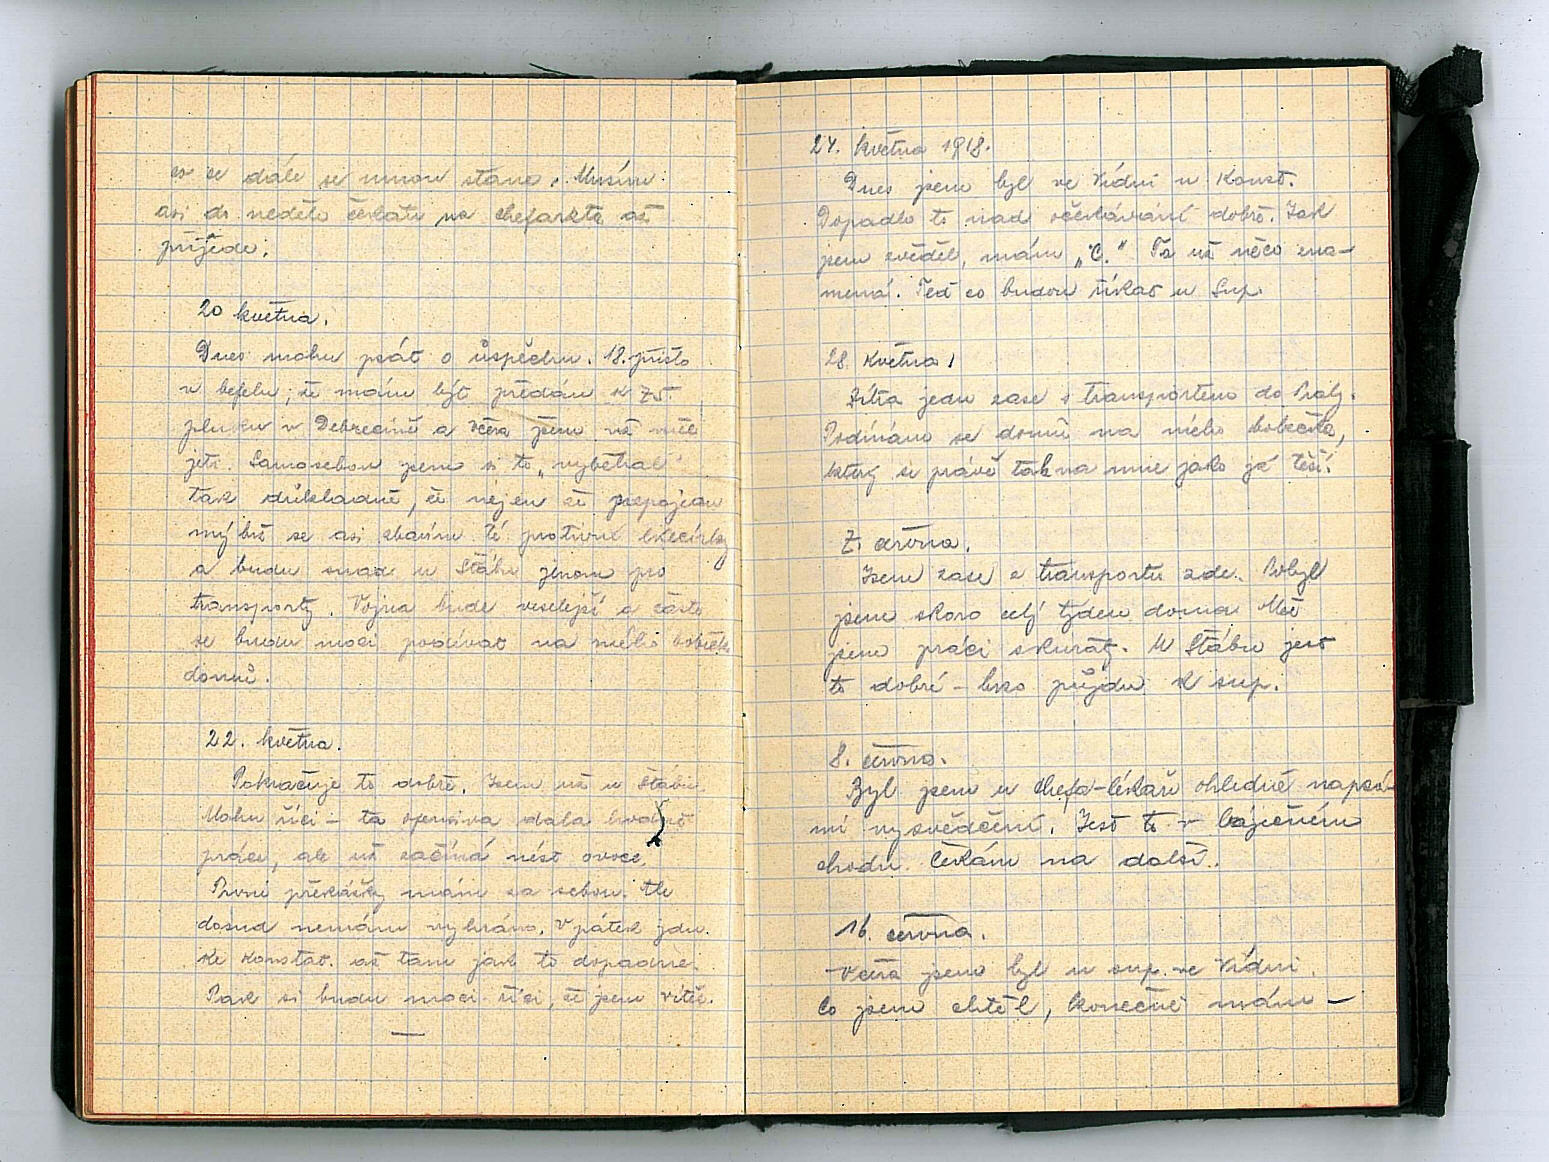 co se dále se mnou stane. Musím
asi do neděle čekati na chefarzta až
přijede.
20 května.
Dnes mohu psát o úspěchu. 18. přišlo
v befelu, že mám být předán k 75.
pluku v Debrecíně a včera jsem už měl
jeti. Samosebou jsem si to „vyběhal"
tak důkladně, že nejen že nepojedu
nýbrž se asi zbavím té protivné
a budu snad u Štábu jenom pro
transporty. Vojna bude veselejší a často
se budu moci podívat na mého bobečka
domů.
22. května.
Pokračuje to dobře. Jsem už u Štábu.
Mohu říci – ta ofensiva dala hrozně
práce, ale už začíná nést ovoce.
První překážky mám za sebou. Ale
dosud nemám vyhráno. V pátek jdu
ke konstat. až tam jak to dopadne.
Pak si budu moci říci, že jsem vítěz.
24. května 1918.
Dnes jsem byl ve Vídni u Konst.
Dopadlo to nad očekávání dobře. Jak
jsem zvěděl, mám „C." To už něco zna-
mená. Teď co budou říkat u Sup.
28. května.
Zítra jedu zase s transportem do Prahy.
Podívám se domů na mého bobečka,
který se právě tak na mne jako já těší.
7. června.
Jsem zase z transportu zde. Pobyl
jsem skoro celý týden doma. Měl
jsem práci s kuráty. U Štábu jest
to dobré – brzo půjdu k sup.
8. června.
Byl jsem u chefa-lékaře ohledně napsá-
ní vysvědčení. Jest to v báječném
chodu. Čekám na další.
16. června.
Včera jsem byl u sup. ve Vídni.
Co jsem chtěl, konečně mám –